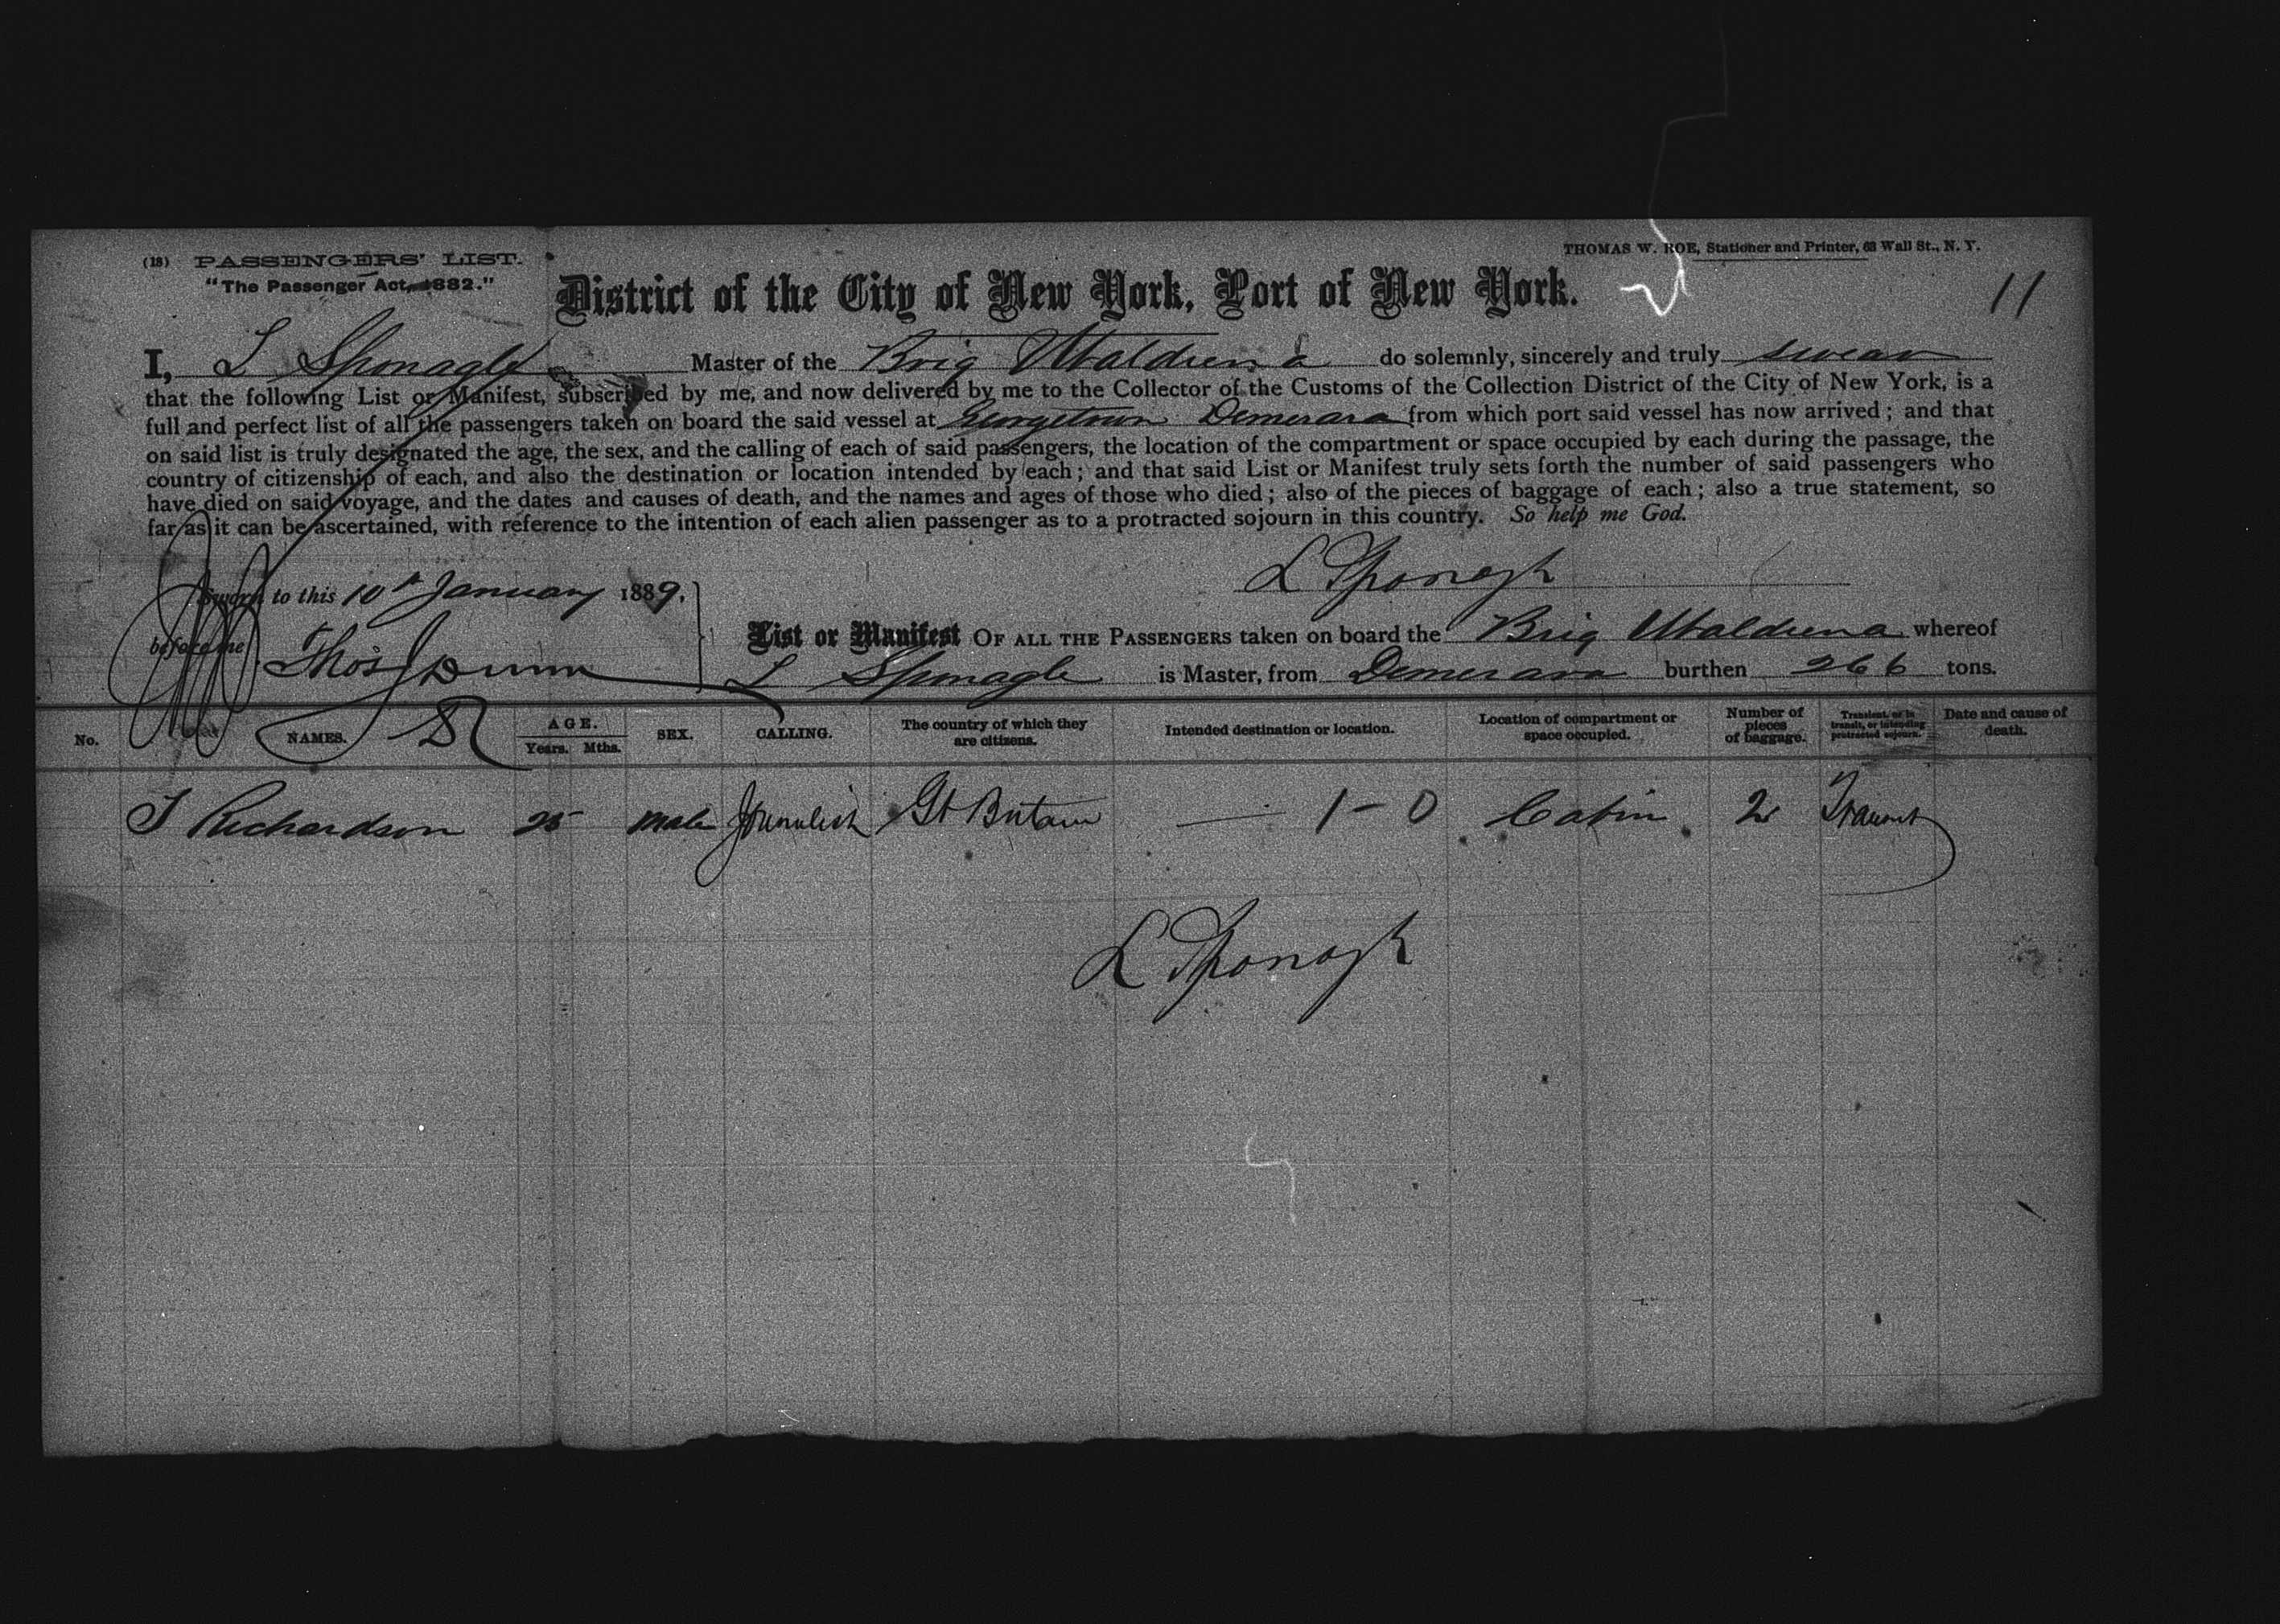 (18) PASSENGERS' LIST.
"The Passenger Act, 1882."
THOMAS W. ROE, Stationer and Printer, 63 Wall St., N. Y.
District of the City of New York, Port of New York.
11
I, L Sponagle Master of the Brig Waldrena do solemnly, sincerely and truly swear
that the following List or Manifest, subscribed by me, and now delivered by me to the Collector of the Customs of the Collection District of the City of New York, is a
full and perfect list of all the passengers taken on board the said vessel at Georgetown Demerara from which port said vessel has now arrived; and that
on said list is truly designated the age, the sex, and the calling of each of said passengers, the location of the compartment or space occupied by each during the passage, the
country of citizenship of each, and also the destination or location intended by each; and that said List or Manifest truly sets forth the number of said passengers who
have died on said voyage, and the dates and causes of death, and the names and ages of those who died; also of the pieces of baggage of each; also a true statement, so
far as it can be ascertained, with reference to the intention of each alien passenger as to a protracted sojourn in this country. So help me God.
L Sponagle
Sworn to this 10th January 1889,
before me Thos J Dunn
List or Manifest OF ALL THE PASSENGERS taken on board the Brig Waldrena whereof
L Sponagle is Master, from Demerara burthen 266 tons.
No. NAMES. AGE. Years. Mths. SEX. CALLING. The country of which they are citizens. Intended destination or location. Location of compartment or space occupied. Number of pieces of baggage. Transient, or in transit, or intending protracted sojourn. Date and cause of death.
J Richardson 25 Male Journalist Gt Britain — 1 - 0 Cabin 2 Transit
L Sponagle